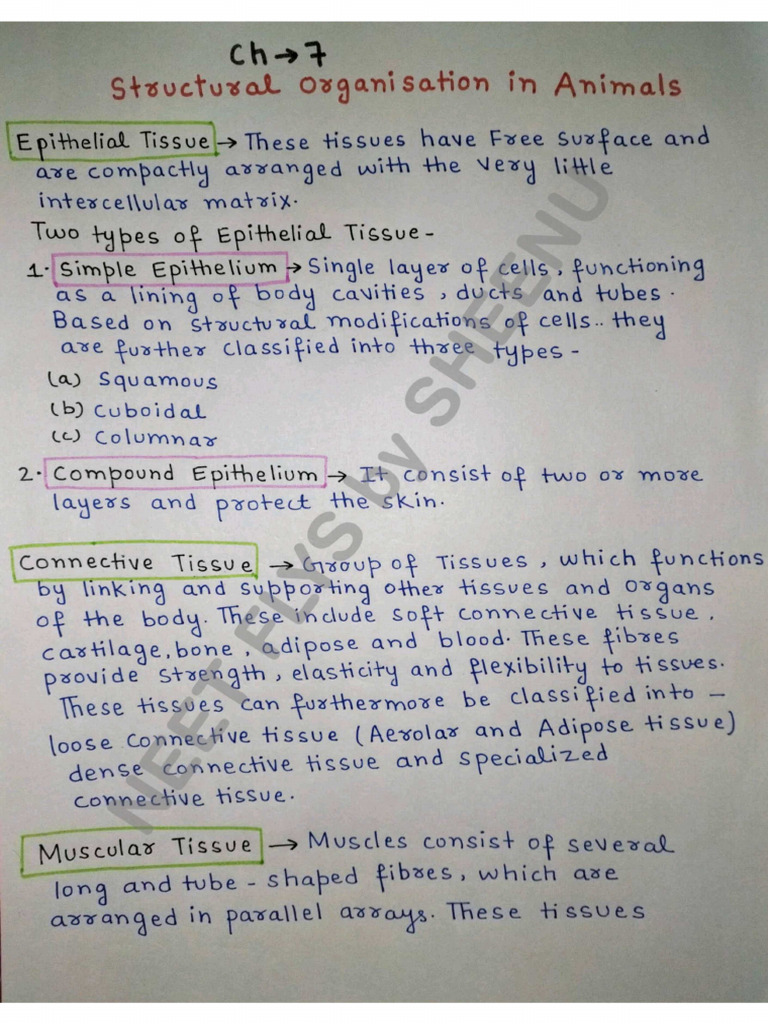 Ch → 7
Structural Organisation in Animals
Epithelial Tissue → These tissues have Free Surface and
are compactly arranged with the very little
intercellular matrix.
Two types of Epithelial Tissue -
1. Simple Epithelium → Single layer of cells, functioning
as a lining of body cavities, ducts and tubes.
Based on structural modifications of cells.. they
are further classified into three types -
(a) Squamous
(b) Cuboidal
(c) Columnar
2. Compound Epithelium → It consist of two or more
layers and protect the skin.
Connective Tissue → Group of Tissues, which functions
by linking and supporting other tissues and organs
of the body. These include soft connective tissue,
cartilage, bone, adipose and blood. These fibres
provide strength, elasticity and flexibility to tissues.
These tissues can furthermore be classified into -
loose connective tissue (Aerolar and Adipose tissue)
dense connective tissue and specialized
connective tissue.
Muscular Tissue → Muscles consist of several
long and tube - shaped fibres, which are
arranged in parallel arrays. These tissues
NEET FLYS by SHEENU